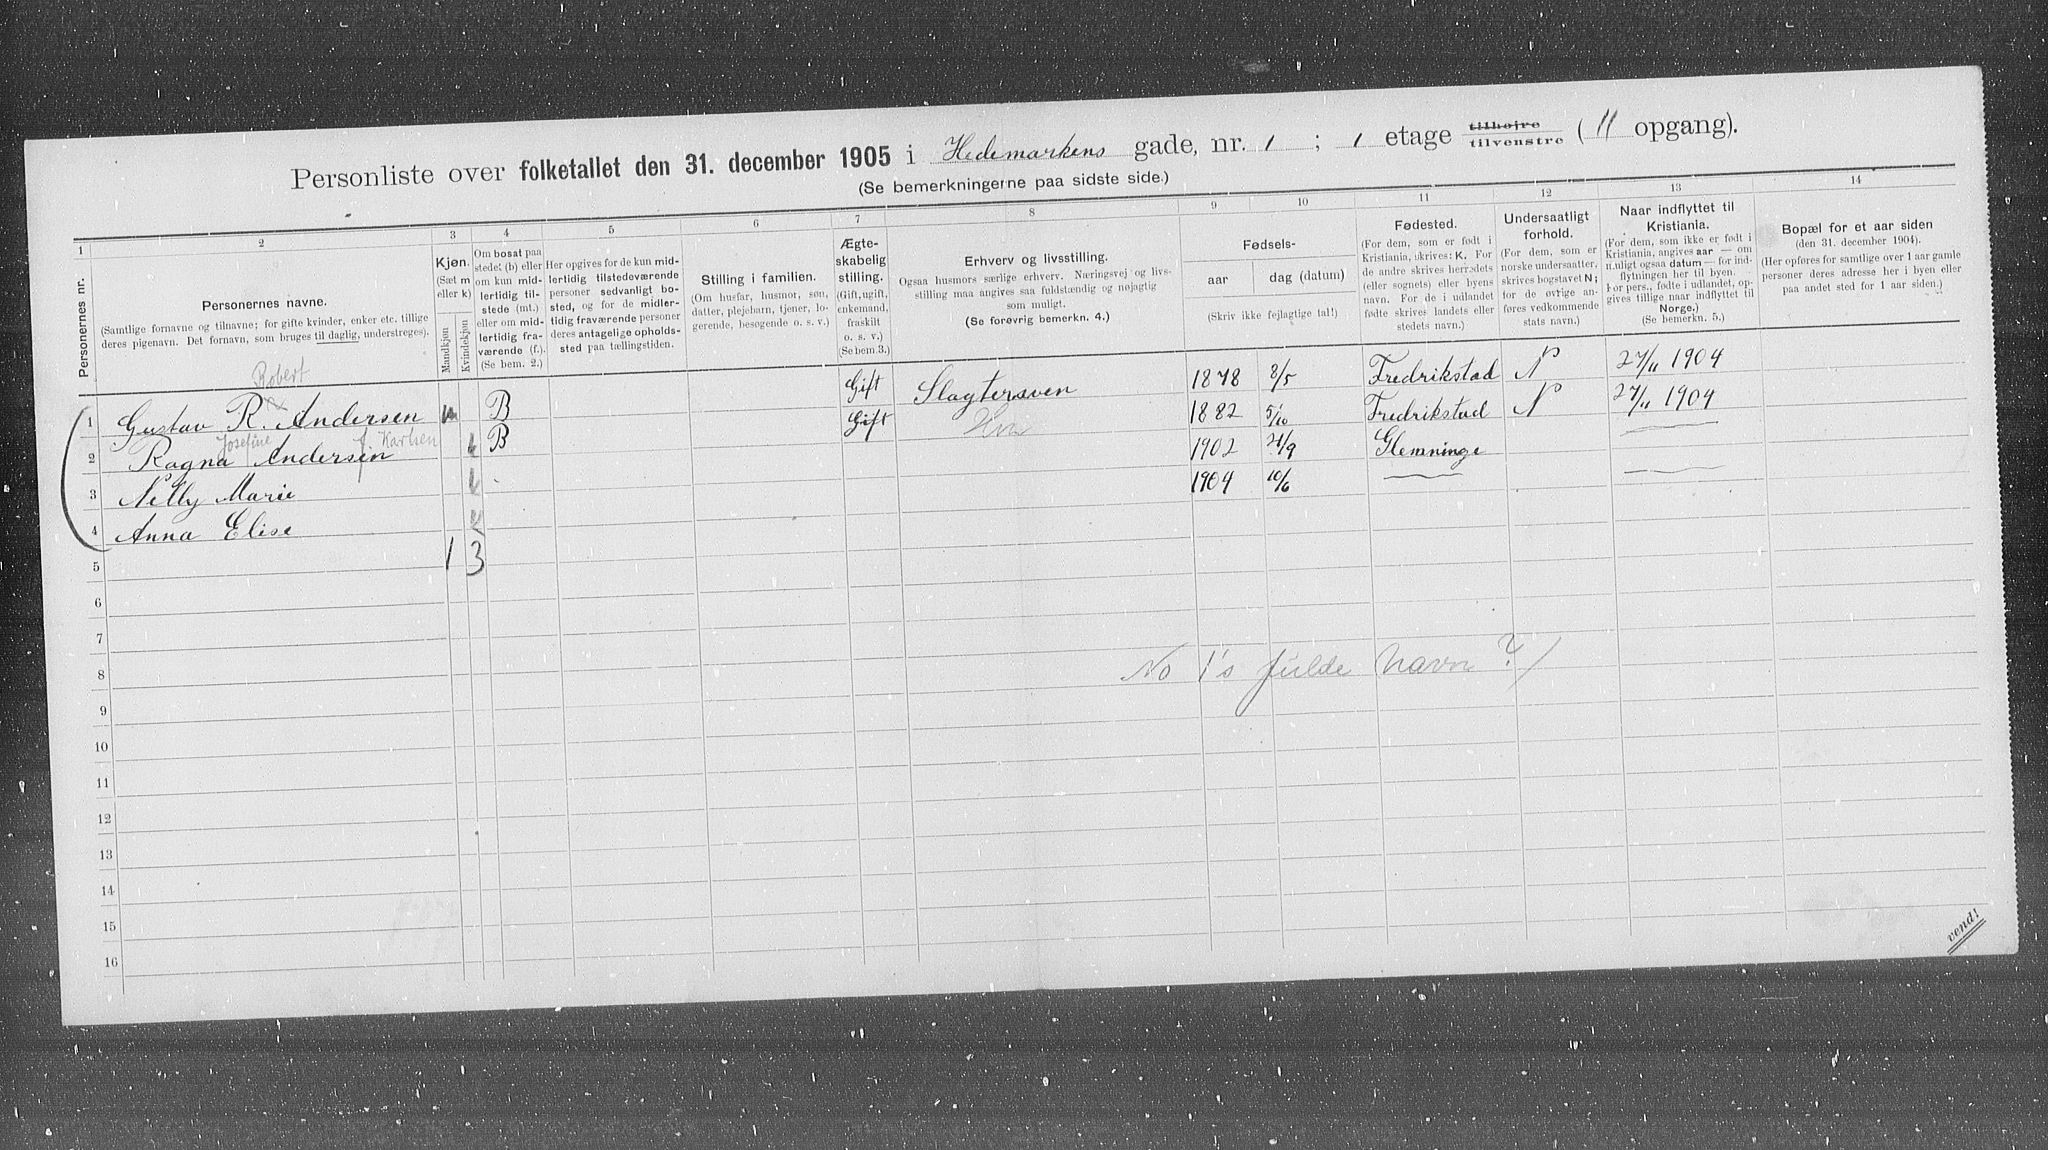 Personliste over folketallet den 31. december 1905 i Hedemarkens gade, nr. 1 ; 1 etage tilhøjre tilvenstre ( 11 opgang).
(Se bemerkningerne paa sidste side.)
1 2 3 4 5 6 7 8 9 10 11 12 13 14
Personernes nr.
Personernes navne.
(Samtlige fornavne og tilnavne; for gifte kvinder, enker etc. tillige
deres pigenavn. Det fornavn, som bruges til daglig, understreges).
Kjøn.
(Sæt m
eller k)
Mandkjøn
Kvindekjøn
Om bosat paa
stedet (b) eller
om kun mid-
lertidig til-
stede (mt.)
eller om mid-
lertidig fra-
værende (f.).
(Se bem. 2.)
Her opgives for de kun mid-
lertidig tilstedeværende
personer sedvanlig bo-
sted, og for de midler-
tidig fraværende personer
deres antagelige opholds-
sted paa tællingstiden.
Stilling i familien.
(Om husfar, husmor, søn,
datter, plejebarn, tjener, lo-
gerende, besøgende o. s. v.)
Ægte-
skabelig
stilling.
(Gift, ugift,
enkemand,
fraskilt
o. s. v.)
(Se bem. 3.)
Erhverv og livsstilling.
Ogsaa husmors særlige erhverv. Næringsvej og livs-
stilling maa angives saa fuldstændig og nøjagtig
som muligt.
(Se forøvrig bemerkn. 4.)
Fødsels-
aar
dag (datum)
(Skriv ikke fejlagtige tal!)
Fødested.
(For dem, som er født i
Kristiania, skrives: K. For
de andre skrives herredets
(eller sognets) eller byens
navn. For de i udlandet
fødte skrives landets eller
stedets navn.)
Undersaatligt
forhold.
(For dem, som er
norske undersaatter,
skrives bogstavet N;
for de øvrige an-
føres vedkommende
stats navn.)
Naar indflyttet til
Kristiania.
(For dem, som ikke er født i
Kristiania, angives aar — om
muligt ogsaa datum — for ind-
flytningen her til byen.
For pers., fødte i udlandet, op-
gives tillige naar indflyttet til
Norge.)
(Se bemerkn. 5.)
Bopæl for et aar siden
(den 31. december 1904).
(Her opføres for samtlige over 1 aar gamle
personer deres adresse her i byen eller
paa andet sted for 1 aar siden.)
Robert
1 Gustav R. Andersen m B Gift Slagtersven 1878 8/5 Fredrikstad N 27/11 1904
Josefine f. Karlsen
2 Ragna Andersen k B Gift 1882 5/10 Fredrikstad N 27/11 1904
3 Nelly Marie k 1902 21/9 Glemminge
4 Anna Elise k 1904 10/6
5 1 3
6
7
8 No 1's fulde navn?/
9
10
11
12
13
14
15
16
vend!